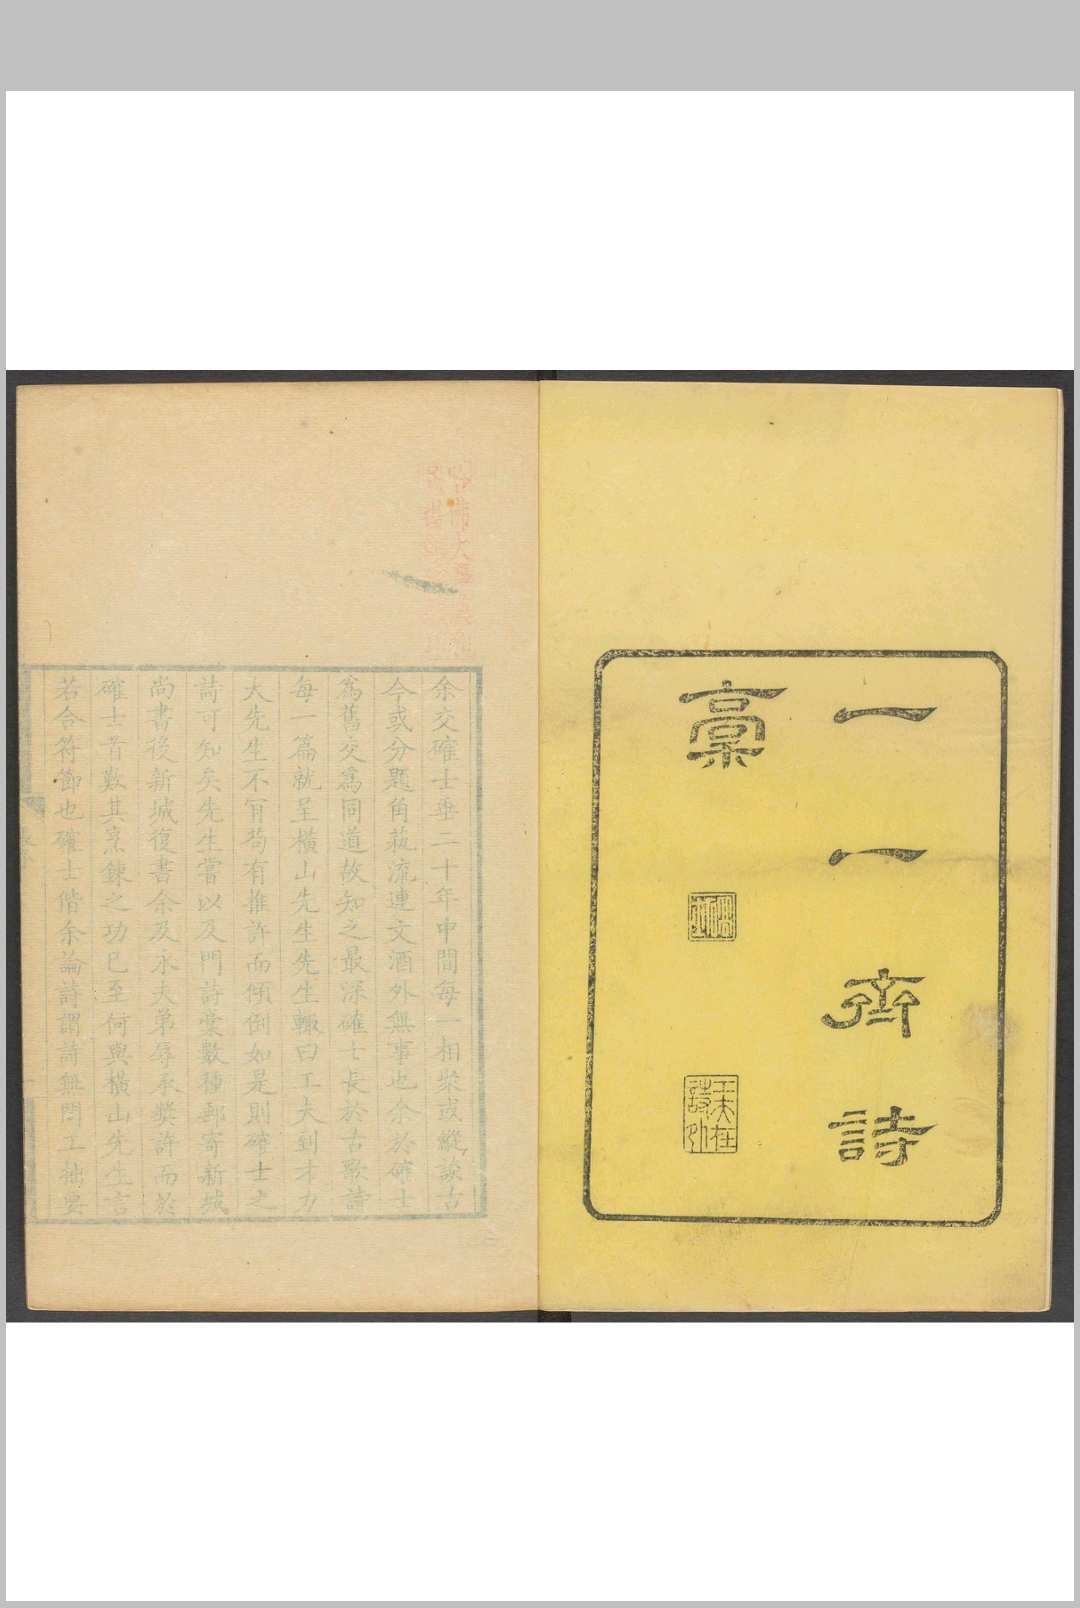 一一齋詩
稾
工夫在
詩外
余交確士垂二十年中間每相聚或縱談古
今或分題角蓺流連文酒外無事也余於確士
爲舊交爲同道故知之最深確士長於古歌詩
每一篇就呈橫山先生先生輒曰工夫到才力
大先生不肎茍有推許而傾倒如是則確士之
詩可知矣先生嘗以及門詩稾數種郵寄新城
尚書後新城復書余及永夫弟辱承獎許而於
確士首歎其烹鍊之功已至何與橫山先生言
若合符節也確士偕余論詩謂詩無問工拙要